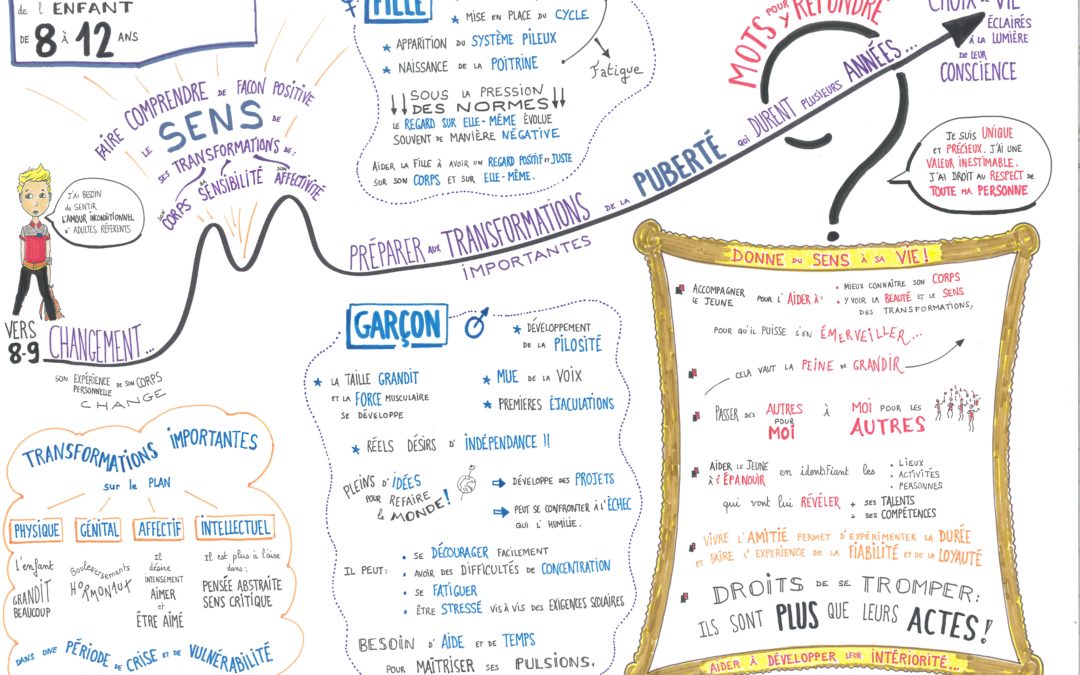 de L'ENFANT
DE 8 À 12 ANS
FAIRE COMPRENDRE DE FAÇON POSITIVE
LE SENS DE
SES TRANSFORMATIONS DE:
SON CORPS
SA SENSIBILITÉ
SON AFFECTIVITÉ
J'AI BESOIN
de SENTIR
L'AMOUR INCONDITIONNEL
D'ADULTES RÉFÉRENTS
VERS
8-9
CHANGEMENT...
SON EXPÉRIENCE DE SON CORPS
PERSONNELLE
CHANGE
TRANSFORMATIONS IMPORTANTES
sur le PLAN
PHYSIQUE
GÉNITAL
AFFECTIF
INTELLECTUEL
L'enfant
GRANDIT
BEAUCOUP
Bouleversements
HORMONAUX
Il
désire
INTENSEMENT
AIMER
et
ÊTRE AIMÉ
Il est plus à l'aise
dans:
PENSÉE ABSTRAITE
SENS CRITIQUE
DANS UNE PÉRIODE DE CRISE ET DE VULNÉRABILITÉ
FILLE
★ MISE EN PLACE DU CYCLE
★ APPARITION DU SYSTÈME PILEUX
★ NAISSANCE DE LA POITRINE
Fatigue
SOUS LA PRESSION
DES NORMES
LE REGARD SUR ELLE-MÊME ÉVOLUE
SOUVENT DE MANIÈRE NÉGATIVE
AIDER LA FILLE À AVOIR UN REGARD POSITIF ET JUSTE
SUR SON CORPS ET SUR ELLE-MÊME.
PRÉPARER AUX TRANSFORMATIONS
IMPORTANTES
DE LA PUBERTÉ QUI DURENT PLUSIEURS ANNÉES...
GARÇON
★ DÉVELOPPEMENT
DE LA PILOSITÉ
★ LA TAILLE GRANDIT
ET LA FORCE MUSCULAIRE
SE DÉVELOPPE
★ MUE DE LA VOIX
★ PREMIERES ÉJACULATIONS
★ RÉELS DÉSIRS D'INDÉPENDANCE !!
PLEINS D'IDÉES
POUR REFAIRE
LE MONDE!
➡ DÉVELOPPE DES PROJETS
➡ PEUT SE CONFRONTER À L'ÉCHEC
QUI L'HUMILIE.
IL PEUT:
• SE DÉCOURAGER FACILEMENT
• AVOIR DES DIFFICULTÉS DE CONCENTRATION
• SE FATIGUER
• ÊTRE STRESSÉ VIS À VIS DES EXIGENCES SCOLAIRES
BESOIN D'AIDE ET DE TEMPS
POUR MAÎTRISER SES PULSIONS.
MOTS POUR
Y RÉPONDRE
CHOIX DE VIE
ÉCLAIRÉS
À LA LUMIÈRE
DE LEUR
CONSCIENCE
JE SUIS UNIQUE
ET PRÉCIEUX. J'AI UNE
VALEUR INESTIMABLE.
J'AI DROIT AU RESPECT DE
TOUTE MA PERSONNE
DONNE DU SENS À SA VIE!
ACCOMPAGNER
LE JEUNE
POUR L'AIDER À:
• MIEUX CONNAÎTRE SON CORPS
• Y VOIR LA BEAUTÉ ET LE SENS
DES TRANSFORMATIONS,
POUR QU'IL PUISSE S'EN ÉMERVEILLER...
CELA VAUT LA PEINE DE GRANDIR
PASSER DES AUTRES
POUR
MOI
À
MOI POUR LES
AUTRES
AIDER LE JEUNE
À S'ÉPANOUIR
en identifiant les
• LIEUX
• ACTIVITÉS
• PERSONNES
qui vont lui RÉVÉLER
+ ses TALENTS
+ ses COMPÉTENCES
VIVRE L'AMITIÉ PERMET D'EXPÉRIMENTER LA DURÉE
ET FAIRE L'EXPÉRIENCE DE LA FIABILITÉ ET DE LA LOYAUTÉ
DROITS DE SE TROMPER:
ILS SONT PLUS QUE LEURS ACTES!
AIDER À DÉVELOPPER LEUR INTÉRIORITÉ...